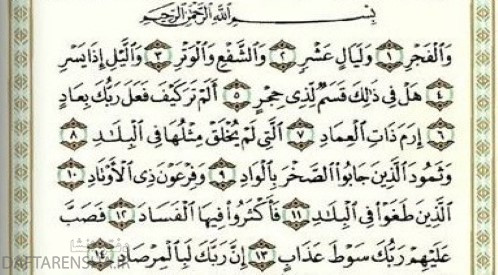 بِسْمِ اللَّهِ الرَّحْمَٰنِ الرَّحِيمِ
وَالْفَجْرِ ١ وَلَيَالٍ عَشْرٍ ٢ وَالشَّفْعِ وَالْوَتْرِ ٣ وَاللَّيْلِ إِذَا يَسْرِ
٤ هَلْ فِي ذَٰلِكَ قَسَمٌ لِّذِي حِجْرٍ ٥ أَلَمْ تَرَ كَيْفَ فَعَلَ رَبُّكَ بِعَادٍ
٦ إِرَمَ ذَاتِ الْعِمَادِ ٧ الَّتِي لَمْ يُخْلَقْ مِثْلُهَا فِي الْبِلَادِ ٨
وَثَمُودَ الَّذِينَ جَابُوا الصَّخْرَ بِالْوَادِ ٩ وَفِرْعَوْنَ ذِي الْأَوْتَادِ ١٠
الَّذِينَ طَغَوْا فِي الْبِلَادِ ١١ فَأَكْثَرُوا فِيهَا الْفَسَادَ ١٢ فَصَبَّ
عَلَيْهِمْ رَبُّكَ سَوْطَ عَذَابٍ ١٣ إِنَّ رَبَّكَ لَبِالْمِرْصَادِ ١٤